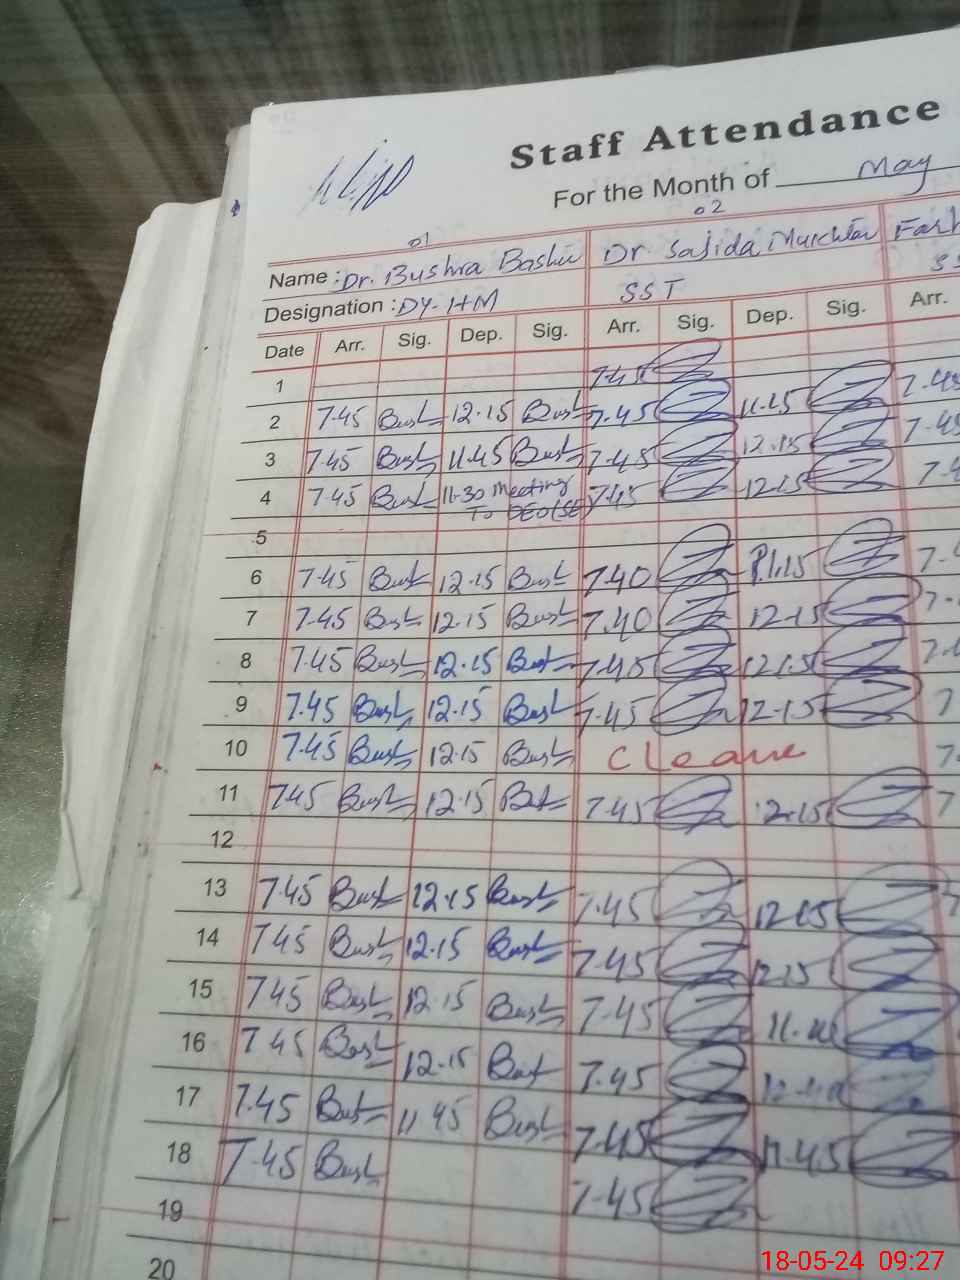 Staff Attendance
For the Month of May
01 02
Name : Dr. Bushra Bashir Dr. Sajida Mukhtar Farh
Designation : DY-HM SST SS
Date Arr. Sig. Dep. Sig. Arr. Sig. Dep. Sig. Arr.
1 7.45
2 7.45 Bush 12.15 Bush 7.45 11.15 7.45
3 7.45 Bush 11.45 Bush 7.45 12.15 7.45
4 7.45 Bush 11-30 meeting 7.45 12.15 7.4
To DEO(SE)
5
6 7.45 Bush 12.15 Bush 7.40 1.15 7.
7 7.45 Bush 12.15 Bush 7.40 12.15 7.
8 7.45 Bush 12.15 Bush 7.45 12.15 7.4
9 7.45 Bush 12.15 Bush 7.45 12.15 7
10 7.45 Bush 12.15 Bush C Leave 7.
11 7.45 Bush 12.15 Bush 7.45 12.15 7
12
13 7.45 Bush 12.15 Bush 7.45 12.15 7
14 7.45 Bush 12.15 Bush 7.45 12.15
15 7.45 Bush 12.15 Bush 7.45
16 7.45 Bush 12.15 Bush 7.45
17 7.45 Bush 11.45 Bush 7.45 11.45
18 7.45 Bush 7.45
19
20
18-05-24 09:27